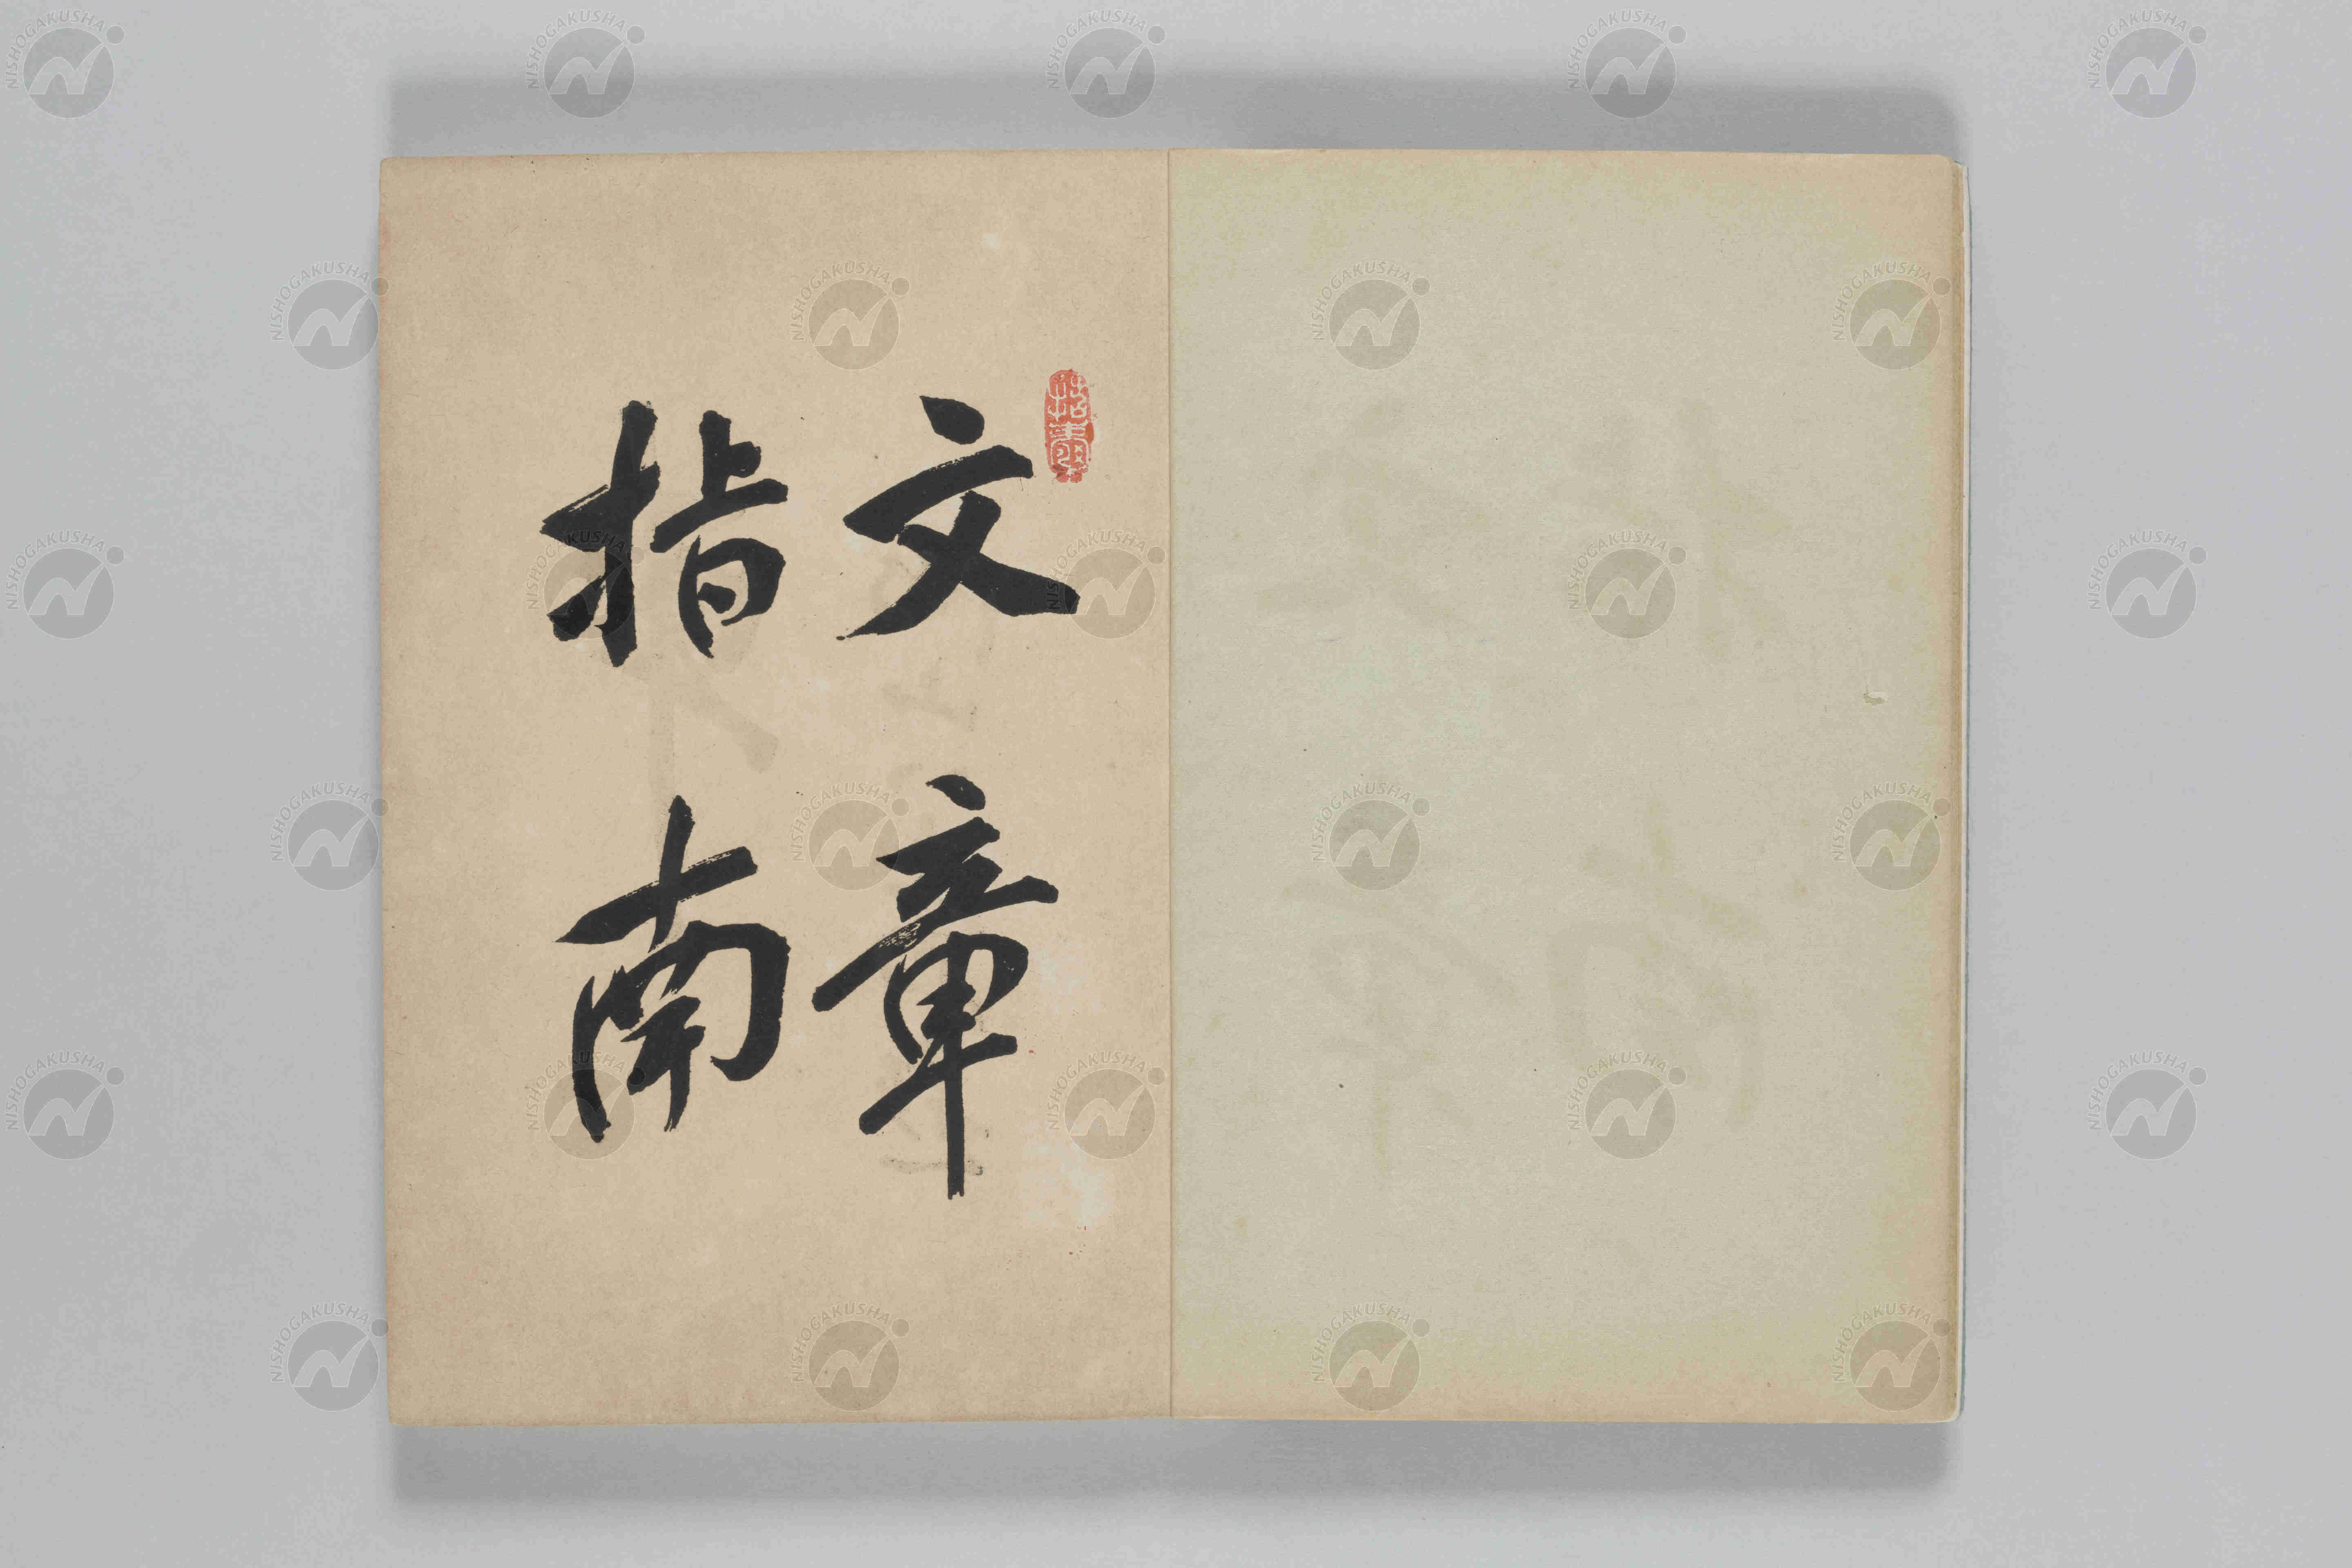 文章
指南
NISHOGAKUSHA